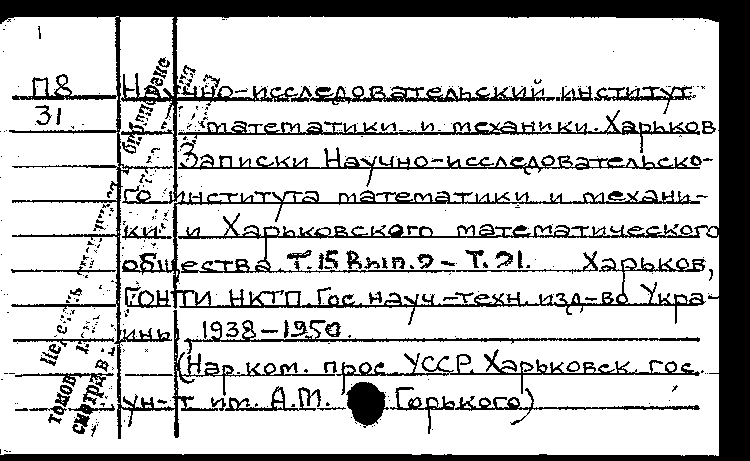 1
П8 Научно-исследовательский институт
31 математики и механики. Харьков
Записки Научно-исследовательско-
го института математики и механи-
ки и Харьковского математического
общества. Т.15 Вып.2 – Т.21. Харьков,
ГОНТИ НКТП. Гос. науч.-техн. изд-во Укра-
ины, 1938–1950.
(Нар. ком. прос. УССР. Харьковск. гос.
ун-т им. А.М. Горького)
Перечень
томов
смотри в библиотеке